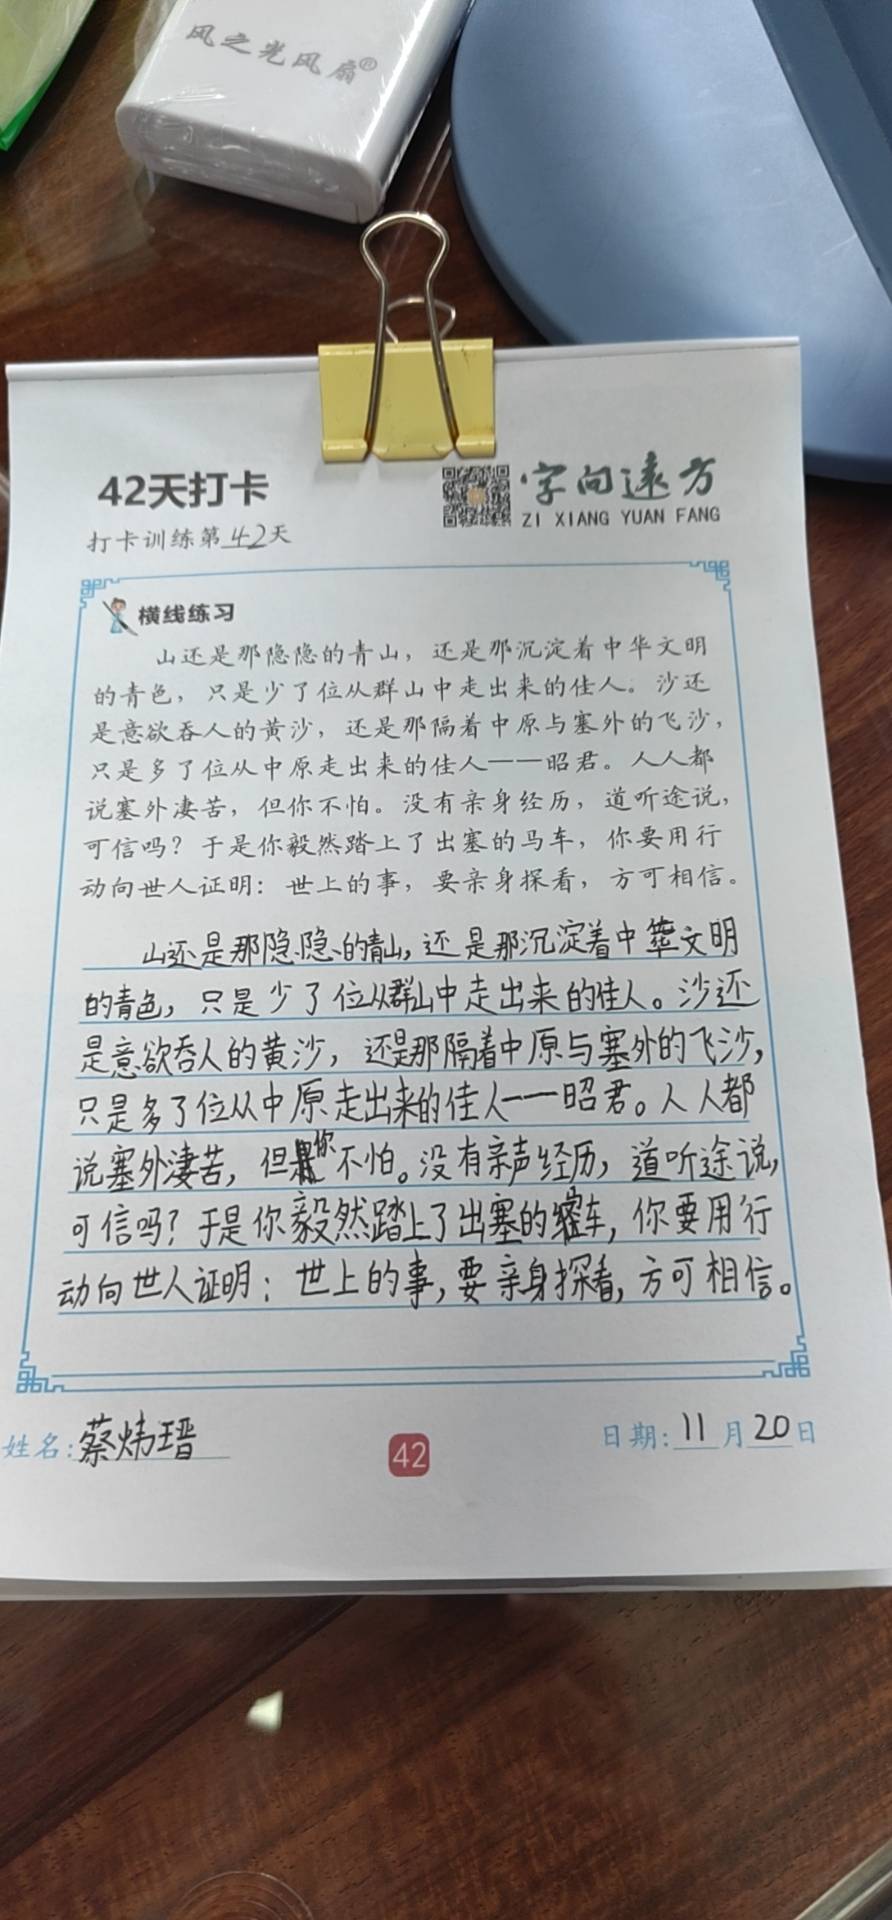 风之光风扇®
42天打卡
字向远方
ZI XIANG YUAN FANG
打卡训练第42天
横线练习
山还是那隐隐的青山，还是那沉淀着中华文明
的青色，只是少了位从群山中走出来的佳人。沙还
是意欲吞人的黄沙，还是那隔着中原与塞外的飞沙，
只是多了位从中原走出来的佳人——昭君。人人都
说塞外凄苦，但你不怕。没有亲身经历，道听途说，
可信吗？于是你毅然踏上了出塞的马车，你要用行
动向世人证明：世上的事，要亲身探看，方可相信。
山还是那隐隐的青山，还是那沉淀着中华文明
的青色，只是少了位从群山中走出来的佳人。沙还
是意欲吞人的黄沙，还是那隔着中原与塞外的飞沙，
只是多了位从中原走出来的佳人——昭君。人人都
说塞外凄苦，但你不怕。没有亲声经历，道听途说，
可信吗？于是你毅然踏上了出塞的车，你要用行
动向世人证明：世上的事，要亲身探看，方可相信。
姓名：蔡炜瑨
42
日期：11月20日